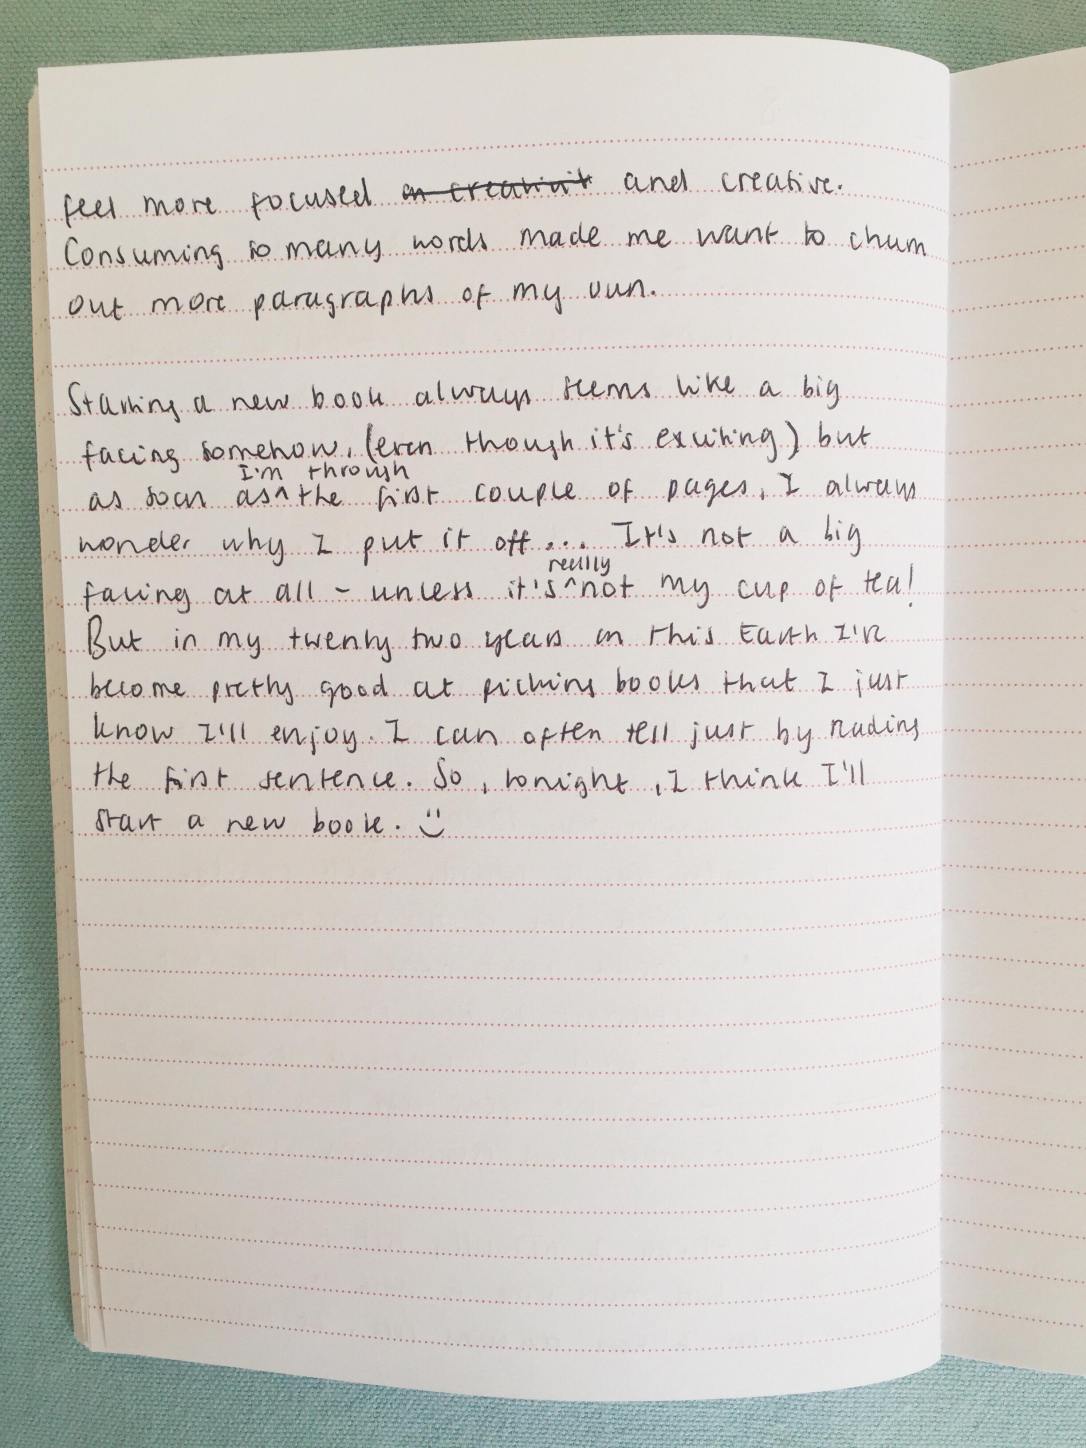 feel more focused ~~on creativit~~ and creative.
Consuming so many words made me want to churn
out more paragraphs of my own.
Starting a new book always seems like a big
facing somehow, (even though it's exciting) but
I'm through
as soon as^the first couple of pages, I always
wonder why I put it off... It's not a big
really
facing at all - unless it's^not my cup of tea!
But in my twenty two years on this Earth I've
become pretty good at picking books that I just
know I'll enjoy. I can often tell just by reading
the first sentence. So, tonight, I think I'll
start a new book. :)